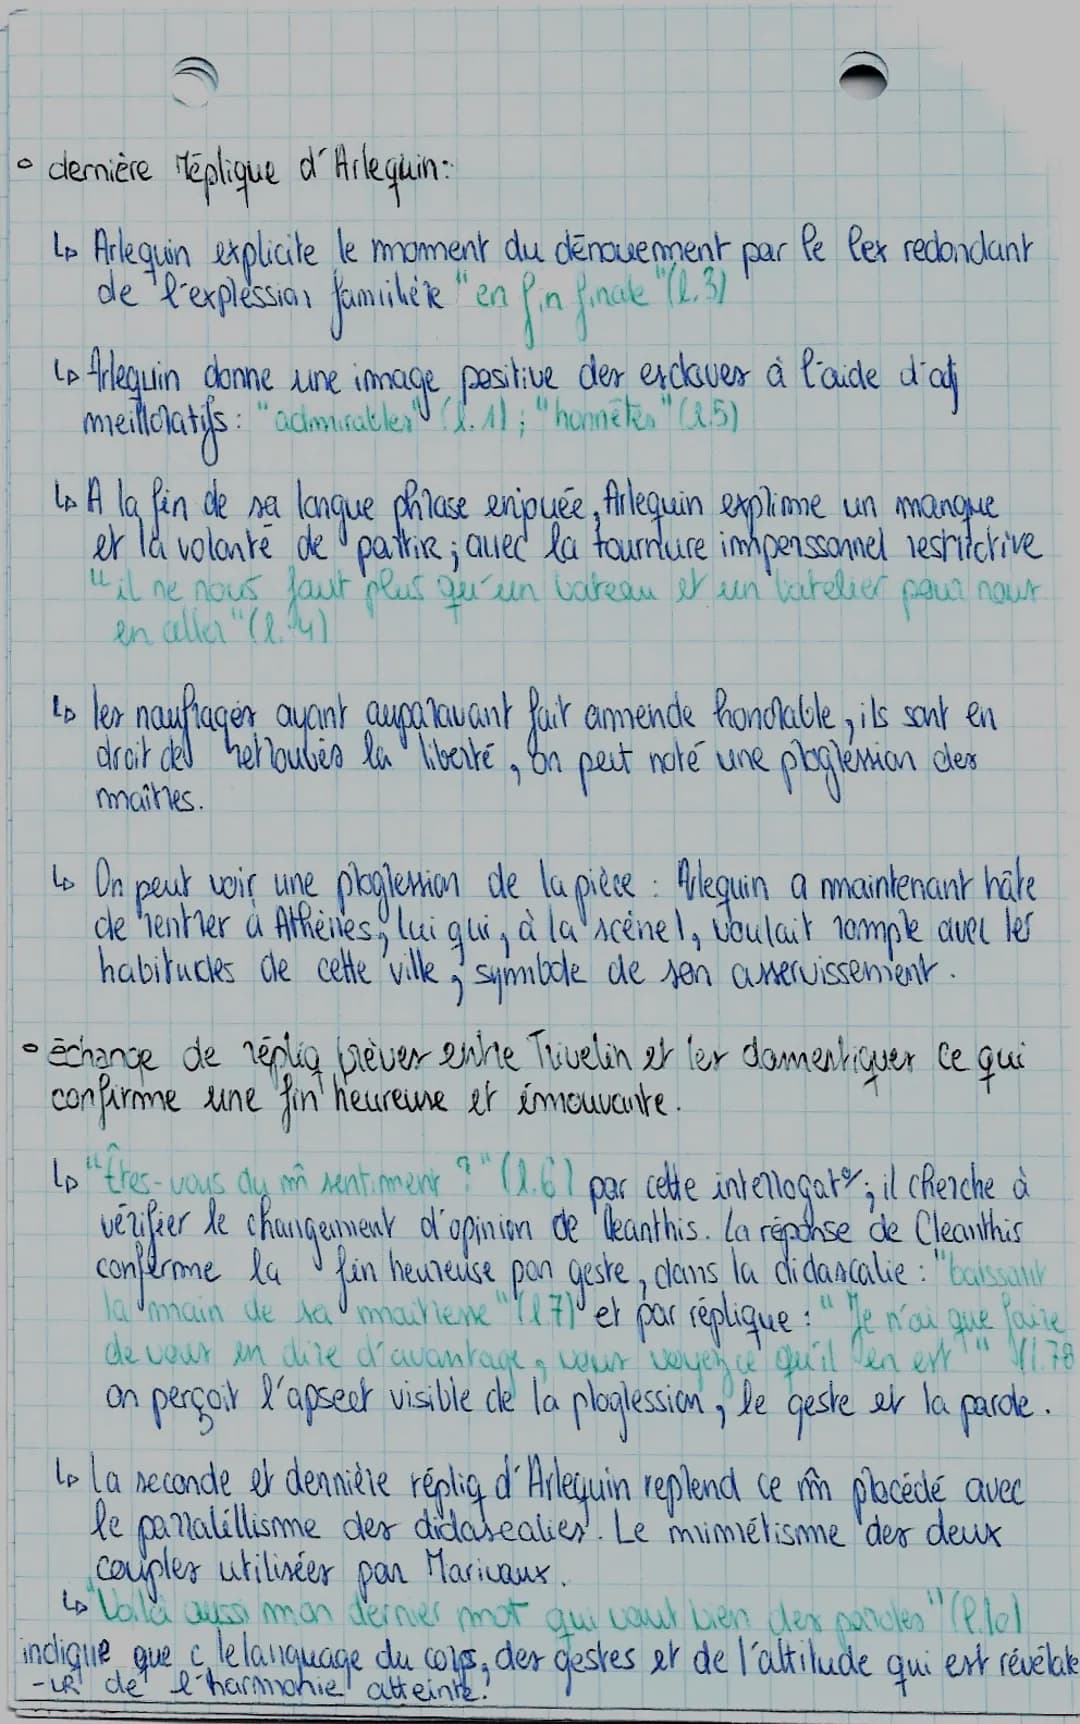 ° dernière réplique d'Arlequin:
↳ Arlequin explicite le moment du dénouement par le lex redondant
de l'expression familière "en fin finale" (l.3)
↳ Arlequin donne une image positive des esclaves à l'aide d'adj
meilloratifs : "admirables" (l.1) ; "honnêtes" (l.5)
↳ A la fin de sa longue phrase enjouée, Arlequin exprime un manque
et la volonté de partir ; avec la tournure impenssonnel restrictive
"il ne nous faut plus qu'un bateau et un batelier pour nous
en aller" (l.4)
↳ les naufragés ayant auparavant fait amende honorable, ils sont en
droit de retrouvés la liberté, on peut noté une progression des
maîtres.
↳ On peut voir une progression de la pièce : Arlequin a maintenant hâte
de rentrer à Athènes, lui qui, à la scène 1, voulait rompre avec les
habitudes de cette ville, symbole de son asservissement.
° échange de répliq brèves entre Trivelin et les domestiques ce qui
confirme une fin heureuse et émouvante.
↳ "Êtes-vous du m̂ sentiment ?" (l.6) par cette interrogat°; il cherche à
vérifier le changement d'opinion de Cleanthis. La réponse de Cleanthis
confirme la fin heureuse par geste, dans la didascalie : "baissant
la main de sa maitresse" (l.7) et par réplique : "Je n'ai que faire
de vous en dire d'avantage, vous voyez ce qu'il en est" (l.78
on perçoit l'apsect visible de la progression, le geste et la parole.
↳ la seconde et dernière répliq d'Arlequin reprend ce m̂ procédé avec
le parralèllisme des didascalies. Le mimétisme des deux
couples utilisées par Marivaux.
↳ "Voilà aussi mon dernier mot qui vaut bien des paroles" (l.10)
indique que c le language du corps, des gestes et de l'altitude qui est révélate
-UR de l'harmonie atteinte.